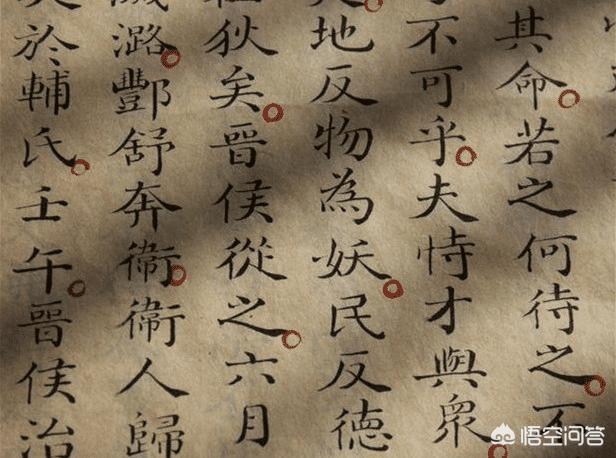 其命。若之何待之。不
不可乎。夫恃才與眾。
地反物為妖。民反德
狄矣。晉侯從之。六月
潞。酆舒奔衛。衛人歸
於輔氏。壬午。晉侯治
悟空问答